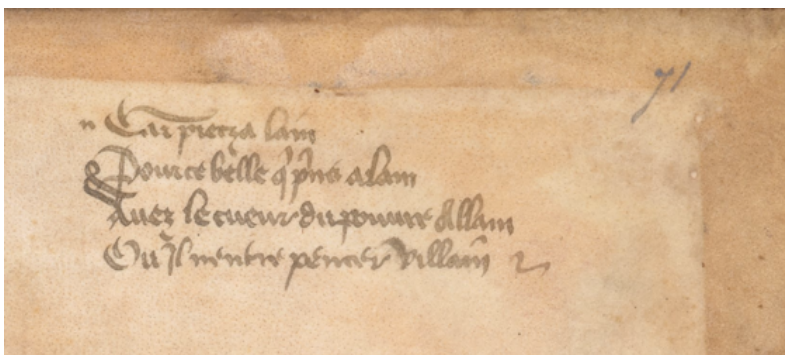 71
n Car piecza lain
Pource belle q̃ p̃ns alam
Auez le cueur du pouure Allain
Ou Il nentre pencer villain